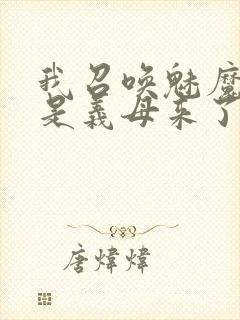 我召唤魅魔
是义母来了
唐煒煒